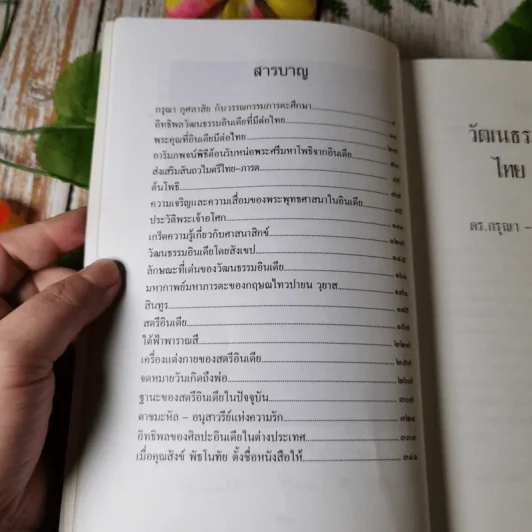 สารบาญ
กรุณา กุศลาสัย กับวรรณกรรมภารตะศึกษา
อิทธิพลวัฒนธรรมอินเดียที่มีต่อไทย
พระคุณที่อินเดียมีต่อไทย
อารัมภพจน์พิธีต้อนรับหน่อพระศรีมหาโพธิจากอินเดีย
ส่งเสริมสันถวไมตรีไทย-ภารต
ต้นโพธิ์
ความเจริญและความเสื่อมของพระพุทธศาสนาในอินเดีย
ประวัติพระเจ้าอโศก
เกร็ดความรู้เกี่ยวกับศาสนาสิกข์
วัฒนธรรมอินเดียโดยสังเขป
ลักษณะที่เด่นของวัฒนธรรมอินเดีย
มหากาพย์มหาภารตะของกฤษณไทวปายน วฺยาส
สินทูร
สตรีอินเดีย
ใต้ฟ้าพาราณสี
เครื่องแต่งกายของสตรีอินเดีย
จดหมายวันเกิดถึงพ่อ
ฐานะของสตรีอินเดียในปัจจุบัน ๓๐๗
ตาชมะหัล - อนุสาวรีย์แห่งความรัก ๓๒๑
อิทธิพลของศิลปะอินเดียในต่างประเทศ
เมื่อคุณสังข์ พัธโนทัย ตั้งชื่อหนังสือให้
วัฒนธร
ไทย
ดร.กรุณา -